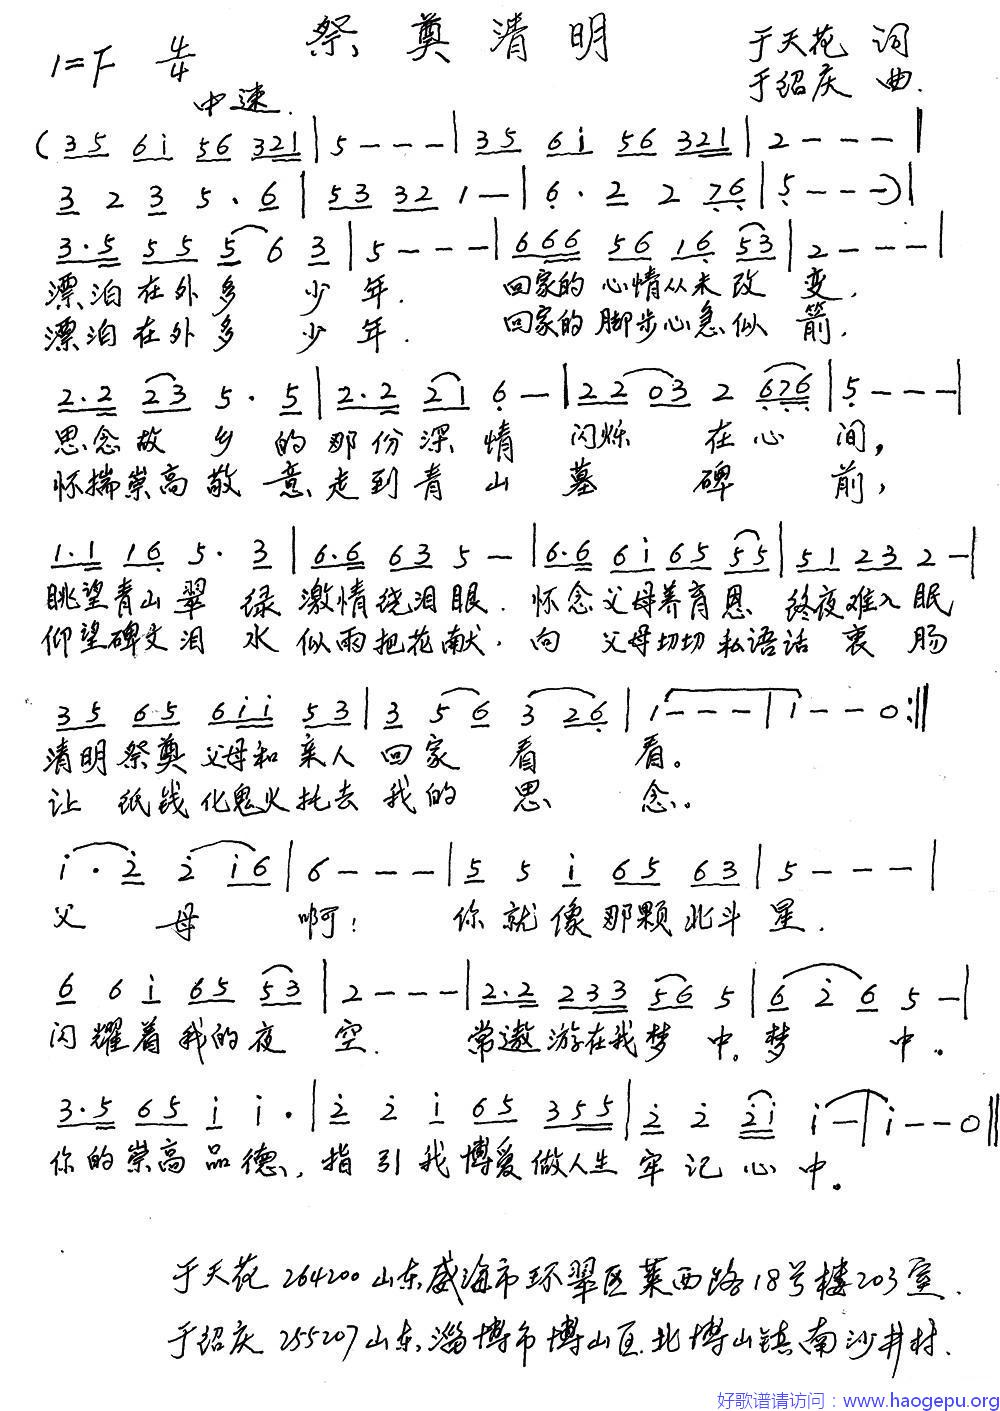 祭奠清明
1=F 4/4
于天花 词
于绍庆 曲.
中速.
(3 5 6 i 5 6 3 2 1 | 5 - - - | 3 5 6 i 5 6 3 2 1 | 2 - - - |
3 2 3 5 · 6 | 5 3 3 2 1 - | 6 · 2 2 7 6 | 5 - - -) |
3 · 5 5 5 5 6 3 | 5 - - - | 6 6 6 5 6 1 6 5 3 | 2 - - - |
漂泊在外多 少 年. 回家的 心情从未 改 变.
漂泊在外多 少 年. 回家的 脚步心急似 箭.
2 · 2 2 3 5 · 5 | 2 · 2 2 1 6 - | 2 2 0 3 2 6 7 6 | 5 - - - |
思念故 乡 的 那份深 情 闪烁 在 心 间,
怀揣崇高 敬 意 走到青 山 墓 碑 前,
1 · 1 1 6 5 · 3 | 6 · 6 6 3 5 - | 6 · 6 6 i 6 5 5 5 | 5 1 2 3 2 - |
眺望青山 翠 绿 激情绕泪眼. 怀念父母养育恩 终夜难入眠
仰望碑文 泪 水 似雨把花献. 向 父母切切私语话 衷 肠
3 5 6 5 6 i i 5 3 | 3 5 6 3 2 6 | 1 - - - | i - - 0 :||
清明祭奠 父母和 亲人 回家 看 看。
让 纸钱化鬼火托去 我的 思 念。
i · 2 2 i 6 | 6 - - - | 5 5 i 6 5 6 3 | 5 - - - |
父 母 啊! 你就像那颗北斗 星.
6 6 i 6 5 5 3 | 2 - - - | 2 · 2 2 3 3 5 6 5 | 6 2 6 5 - |
闪耀着我的夜 空. 常遨游在我梦 中。梦 中。
3 · 5 6 5 i i · | 2 2 i 6 5 3 5 5 | 2 2 2 i i - | i - - 0 ||
你的崇高品德, 指引我博爱做人生 牢记心中。
于天花 264200 山东威海市环翠区莱西路18号楼203室.
于绍庆 255207 山东淄博市博山区北博山镇南沙井村.
好歌谱请访问：www.haogepu.org